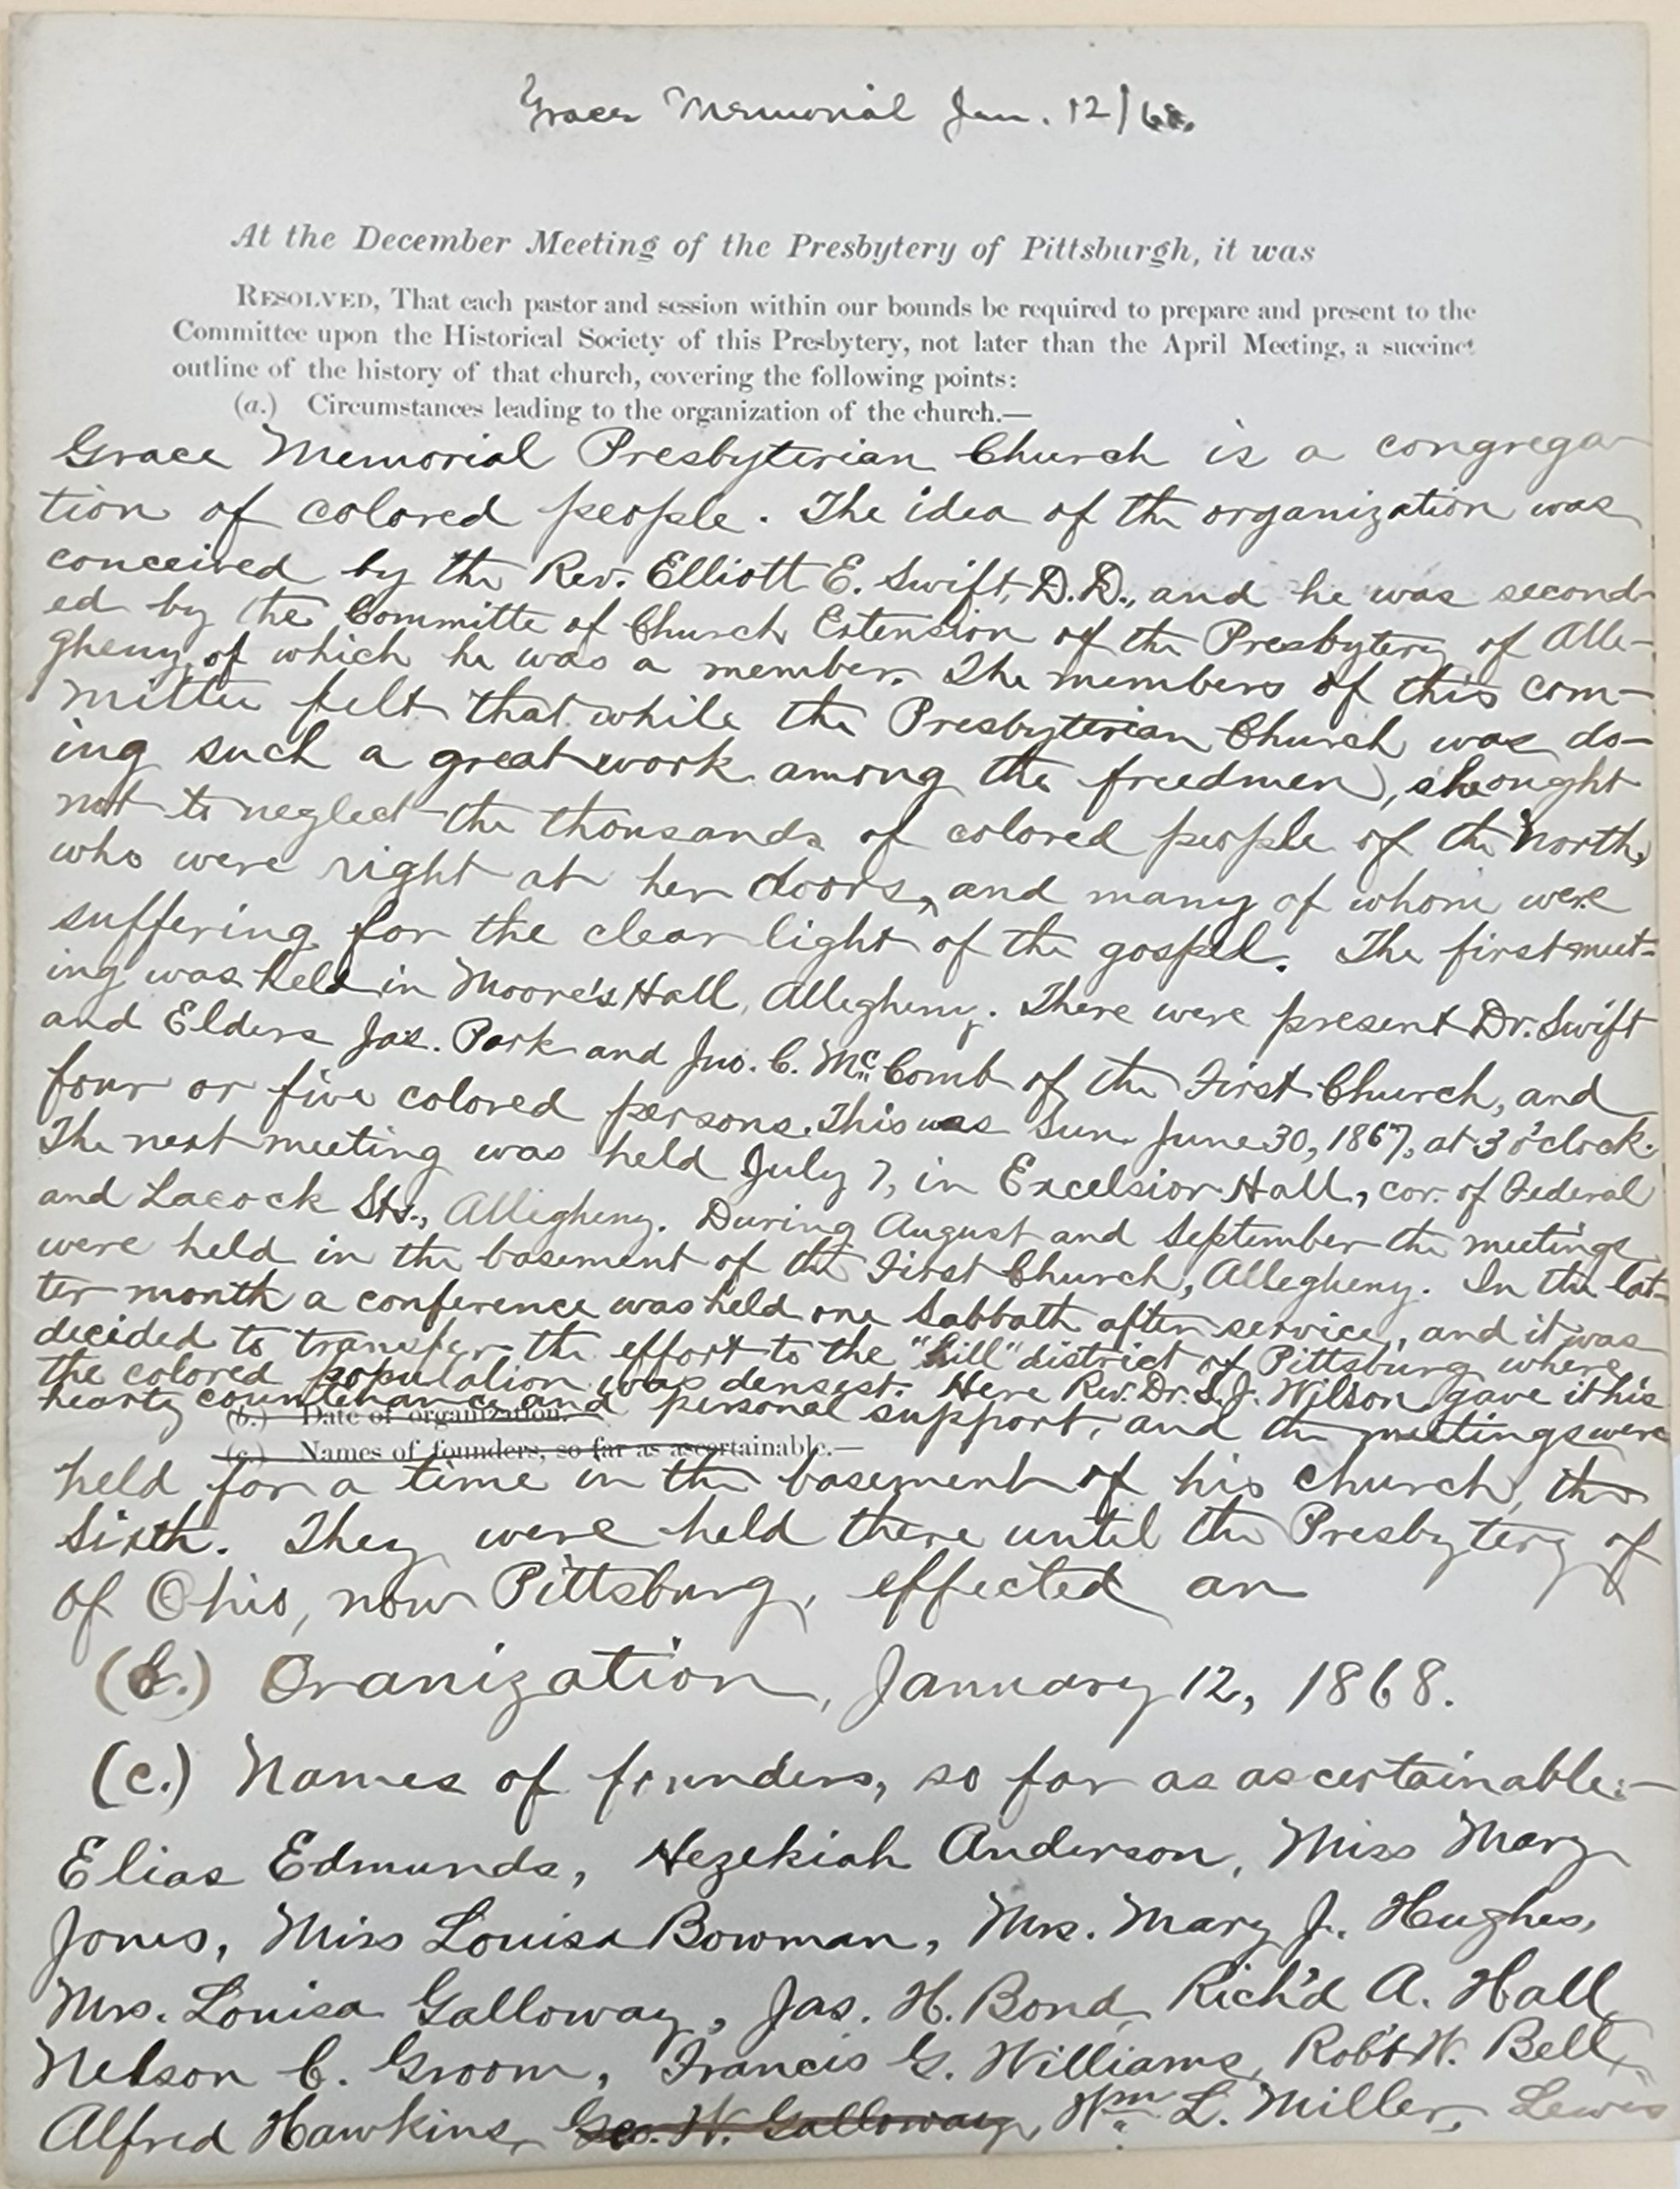 Grace Memorial Jan. 12/68.
At the December Meeting of the Presbytery of Pittsburgh, it was
RESOLVED, That each pastor and session within our bounds be required to prepare and present to the
Committee upon the Historical Society of this Presbytery, not later than the April Meeting, a succinct
outline of the history of that church, covering the following points:
(a.) Circumstances leading to the organization of the church.—
Grace Memorial Presbyterian Church is a congrega-
tion of colored people. The idea of the organization was
conceived by the Rev. Elliott E. Swift, D.D., and he was second-
ed by the Committe of Church Extension of the Presbytery of Alle-
gheny, of which he was a member. The members of this com-
mittee felt that while the Presbyterian Church was do-
ing such a great work among the freedmen, she ought
not to neglect the thousands of colored people of the North,
who were right at her doors, and many of whom were
suffering for the clear light of the gospel. The first meet-
ing was held in Moore's Hall, Allegheny. There were present Dr. Swift
and Elders Jas. Park and Jno. C. McComb of the First Church, and
four or five colored persons. This was Sun. June 30, 1867, at 3 o'clock.
The next meeting was held July 7, in Excelsior Hall, cor. of Federal
and Lacock Sts., Allegheny. During August and September the meetings
were held in the basement of the First Church, Allegheny. In the lat-
ter month a conference was held one Sabbath after service, and it was
decided to transfer the effort to the "hill" district of Pittsburg where
the colored population was densest. Here Rev. Dr. S. J. Wilson gave it his
hearty countenance and personal support, and the meetings were
(b.) Date of organization.—
(c.) Names of founders, so far as ascertainable.—
held for a time in the basement of his church, the
Sixth. They were held there until the Presbytery of
of Ohio, now Pittsburg, effected an
(b.) Oranization, January 12, 1868.
(c.) Names of founders, so far as ascertainable:—
Elias Edmunds, Hezekiah Anderson, Miss Mary
Jones, Miss Louisa Bowman, Mrs. Mary J. Hughes,
Mrs. Louisa Galloway, Jas. H. Bond, Rich'd A. Hall,
Nelson C. Groom, Francis G. Williams, Rob't W. Bell,
Alfred Hawkins, Geo. W. Galloway, Wm. L. Miller, Lewis